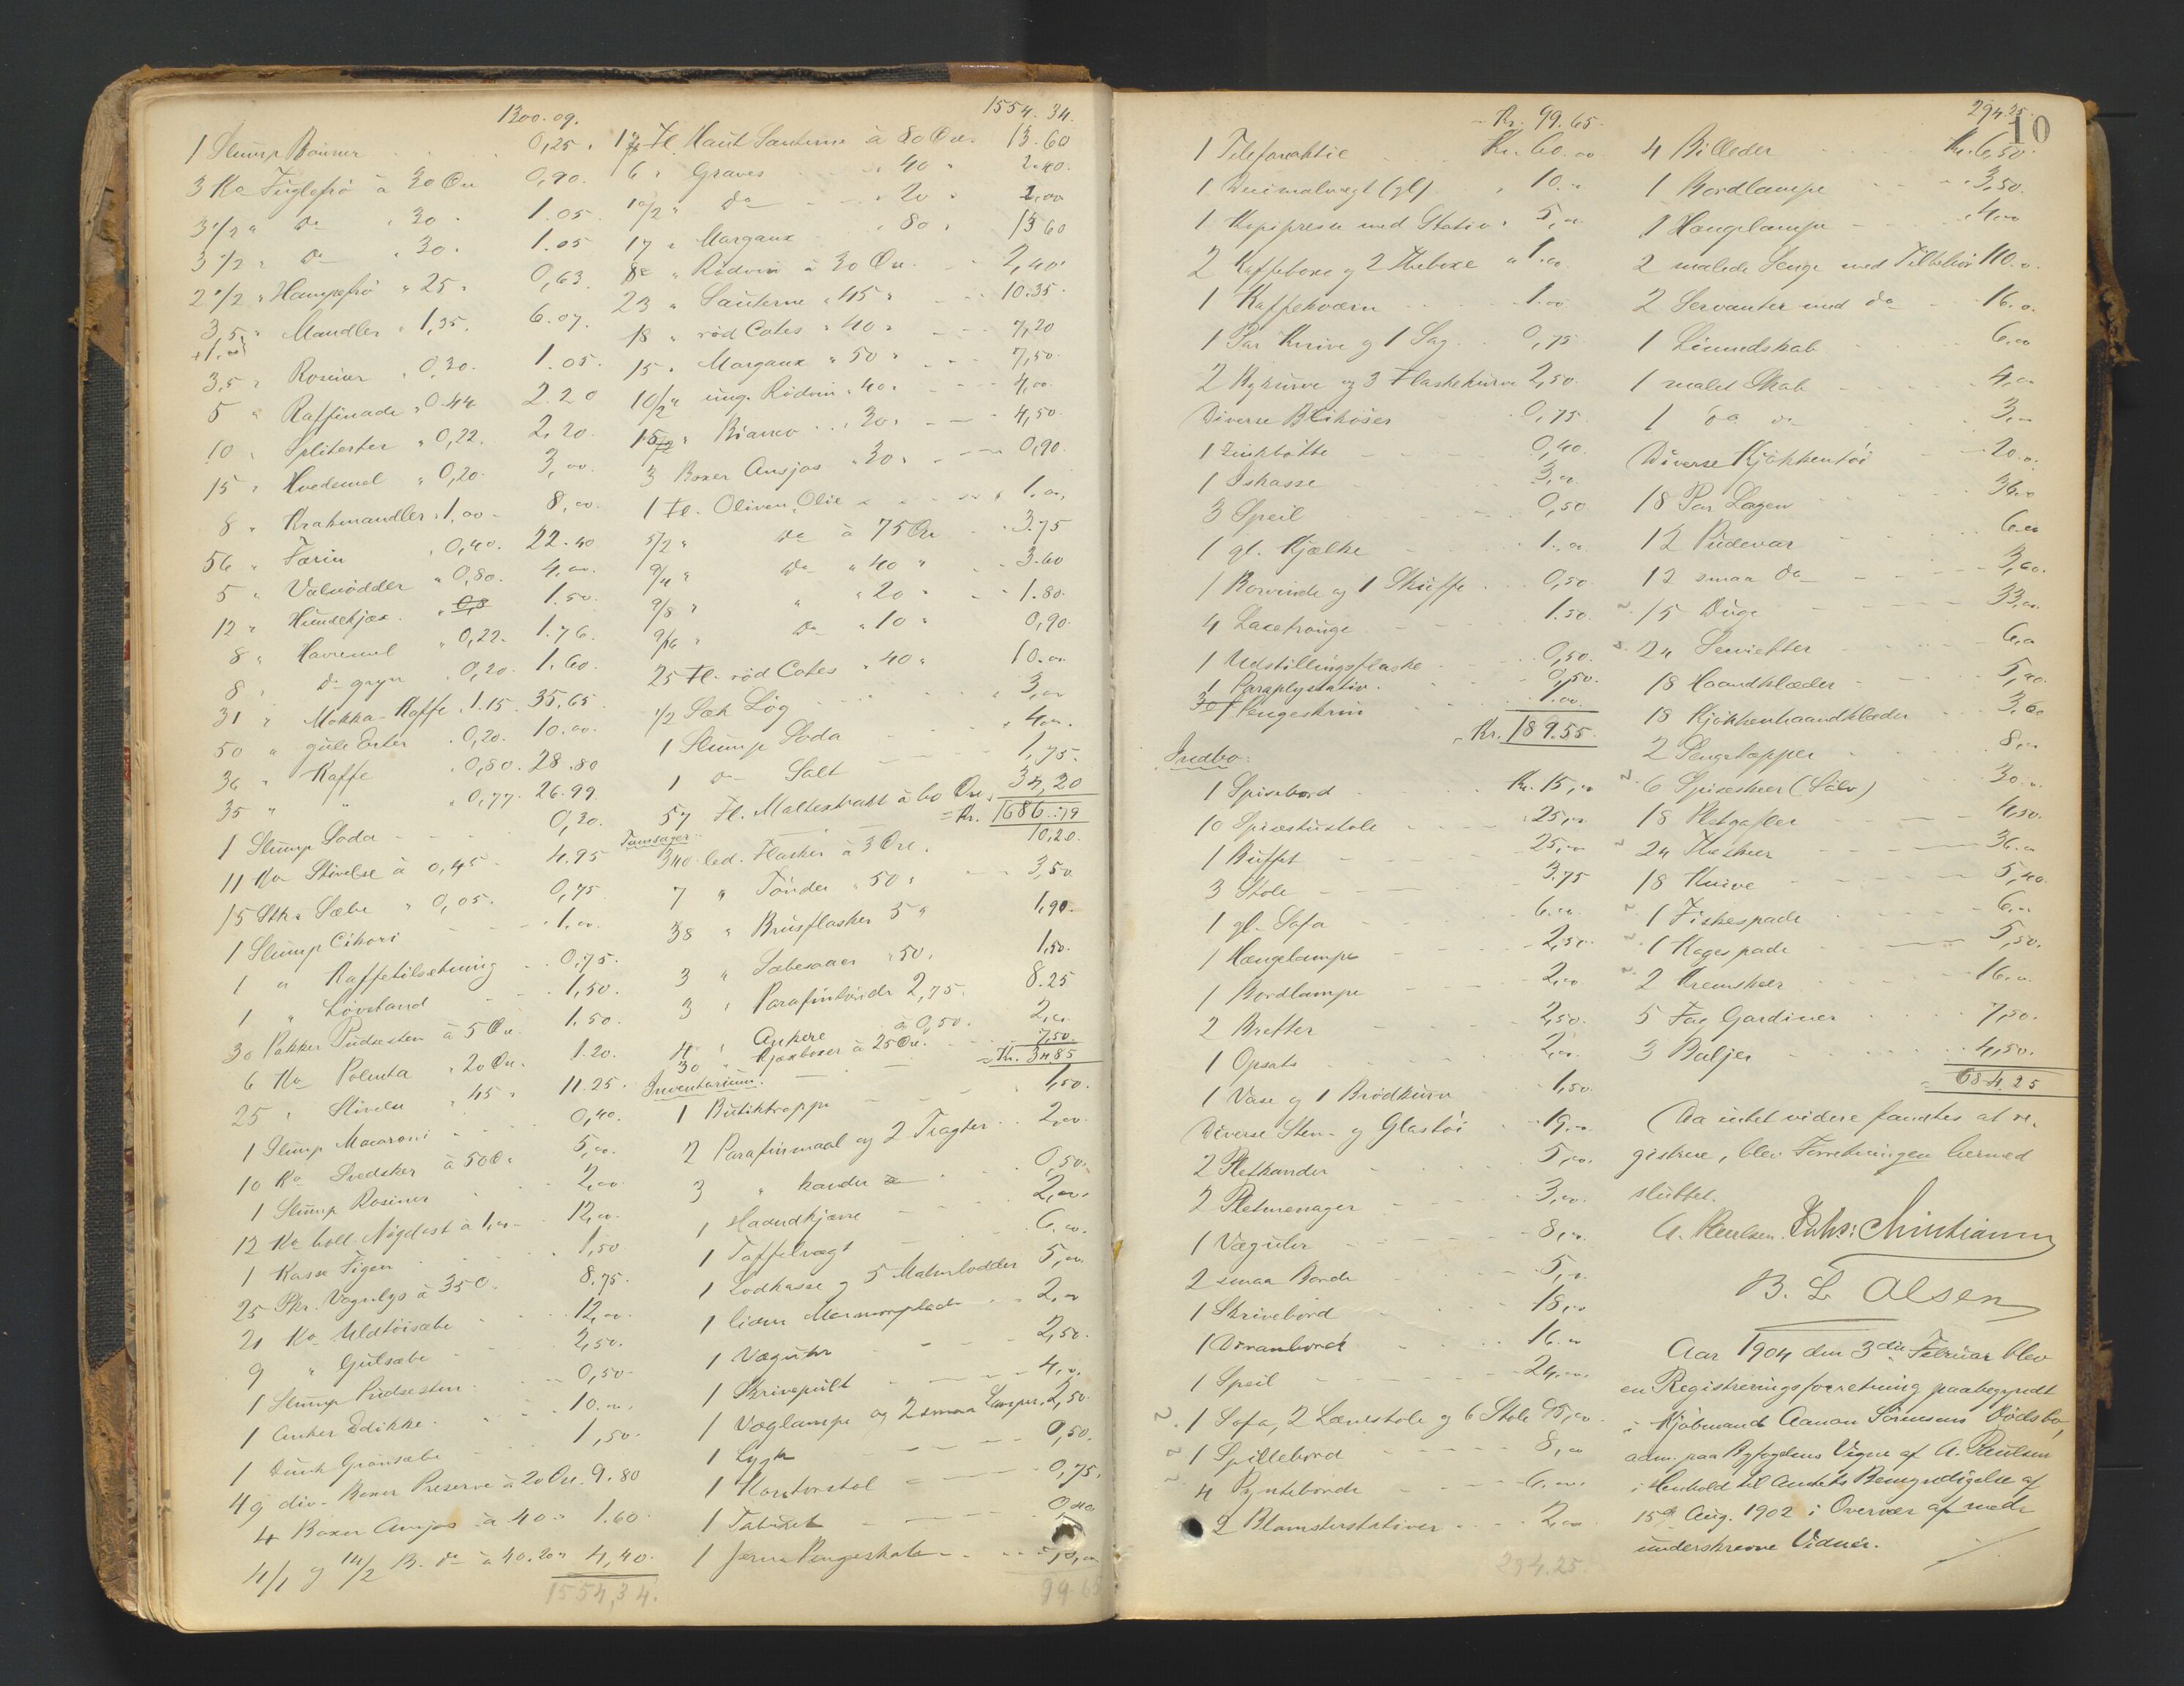 1300.09.
1 Slump Bönner 0,25
3 Ko Fuglefrö à 30 Öre 0,90.
3 1/2 " do " 30 " 1.05
3 1/2 " do " 30. 1.05
2 1/2 " Hampefrö " 25 " 0,63.
3,5 " Mandler " 1,35. 6.07.
3,5 " Rosiner " 0,30. 1.05.
5 " Raffinade " 0.44 2.20
10 " Spliterter " 0,22. 2,20.
15 " Hvedemel " 0,20. 3,00.
8 " Krakmandler " 1,00 8,00.
56 " Farin " 0,40. 22.40
5 " Valnödder " 0,80. 4,00.
12 " Hundekjæx 1.50.
8 " Havremel " 0,22. 1.76.
8 " do gryn " 0,20. 1.60.
31 " Mokka-Kaffe " 1.15. 35,65.
50 " gule Erter " 0,20. 10.00.
36 " Kaffe " 0,80. 28.80
35 " " " 0,77. 26.99.
1 Slump Soda 0,30.
11 Ko Stivelse à 0,45 4.95
15 Stk. Sæbe " 0,05. 0,75
1 Slump Cikori 1.00.
1 " Kaffetilsætning 0,75.
1 " Lövetand 1,50.
30 Pakker Pudsesten à 5 Öre. 1.50.
6 Ko Polenta " 20 Öre. 1.20.
25 " Stivelse " 45 " 11.25.
1 Slump Macaroni 0,40.
10 Ko Svedsker à 50 Ö. 5,00.
1 Slump Rosiner 2,00.
12 Ko holl. Nögelost à 1,00 12,00.
1 Kasse Figen 1,50
25 Pk. Vognlys à 35 Ö. 8.75.
21 Ko Uldtöisæbe 12,00.
9 " Gulsæbe 2,50.
1 Slump Pudsesten 0,50
1 Anker Edikke 10.00.
1 Dunk Grönsæbe 1,50.
49 div. Boxer Preserve à 20 Öre. 9.80
4 Boxer Ansjos à 40 " 1.60
4/1 og 14/2 B. do à 40. 20 " 4,40.
1554,34.
1554.34.
17 Fl. Haut Sauterne à 80 Öre. 13.60
6 " Graves " 40 " 2.40.
10/2 " do " 20 " 2,00
17 " Margaux " 80 " 13 60
8 " Rödvin à 30 Öre 2,40
23 " Sauterne " 45 " 10.35.
18 " röd Cotes " 40 " 7,20
15 " Margaux " 50 " 7,50.
10/2 " ung. Rödvin " 40 " 4,00.
15/2 " Bianco " 30 " 4,50.
3 Boxer Ansjos " 30 " 0,90.
1 Fl. Oliven Olie 1.00.
5/2 " do à 75 Öre 3.75
9/4 " do " 40 " 3.60
9/8 " " " 20 " 1.80.
9/16 " do " 10 " 0,90.
25 Fl. röd Cotes " 40 " 10.00.
1/2 Sæk Lög 3,00
1 Slump Soda 4.00.
1 do Salt 1,75.
57 Fl. Maltextrakt à 60 Öre. 34,20
Kr. 1686.79
Tomsager:
340 led. Flasker à 3 Öre. 10,20.
7 " Tönder " 50 " 3,50
38 " Brusflasker 5 " 1,90.
3 " Sæbesaaer " 50 " 1.50.
3 " Parafintönder 2,75. 8.25
4 " Ankere à 0,50. 2,00.
30 " Kjæxboxer à 25 Öre. 7,50.
Kr. 34 85
Inventarium.
1 Butiktrappe 1,50.
2 Parafinmaal og 2 Tragter 2,00.
3 " kander 0,50.
1 Haandkjærre 2,00.
1 Taffelvægt 6,00.
1 Lodkasse og 5 Malmlodder 5,00.
1 liden Marmorplade 2,00
1 Væguhr 2,50.
1 Skrivepult 4,00.
1 Væglampe og 2 smaa Lamper. 2,50.
1 Lygte 0,50.
1 Kontorstol 0,75.
1 Taburet
1 Jern Pengeskab
99.65
10
Kr. 99.65.
1 Telefonaktie Kr. 60.00
1 Decimalvægt (gl) " 10.00
1 Kopipresse med Stativ " 5,00
2 Kaffeboxe og 2 Theboxe " 1.00
1 Kaffekværn 1.00
1 Par Knive og 1 Sag 0,75
2 Rykurve og 3 Flaskekurve 2,50.
Diverse Blikdåser 0,75.
1 Zinkbötte 0,40.
1 Iskasse 3,00.
3 Speil 0,50
1 gl. Kjælke 1.00
1 Borvinde og 1 Skuffe 0,50.
4 Laxetrouge 1.50.
1 Udstillingsflaske 0,50.
1 Paraplystativ. 0,50.
1 Pengeskrin 1.00.
Kr. 189.55.
Indbo:
1 Spisebord Kr. 15,00
10 Spisestustole 25,00
1 Buffet 25,00
3 Stole 3.75
1 gl. Sofa 6.00.
1 Hængelampe 2,50.
1 Bordlampe 2,00
2 Bretter 2,50.
1 Opsats 2,00.
1 Vase og 1 Brödkurv 1,50.
Diverse Sten- og Glastöi 19,00
2 Pletkander 5,00.
2 Pletmenager 3,00.
1 Væguhr 8,00.
2 smaa Borde 5,00.
1 Skrivebord 18,00
1 Divanbord 16.00
1 Speil 24,00.
1 Sofa, 2 Lænestole og 6 Stole 95,00.
1 Spillebord 8,00
4 Pynteborde 6,00.
2 Blomsterstativer 2,00
294.25.
294.25.
4 Billeder Kr. 6,50.
1 Bordlampe 3,50.
1 Hængelampe 4,00
2 malede Senge med Tilbehör 110.0.
2 Servanter med do 16.0.
1 Linnedskab 6,00
1 malet Skab 4,00
1 do do 3,00
Diverse Kjökkentöi 20.0.
18 Par Lagen 36.0
12 Pudevar 6.00
12 smaa do 3,60.
15 Duge 33,00.
24 Servietter 6,0
18 Haandklæder 5,40.
18 Kjökkenhaandklæder 3,60
2 Sengetæpper 8,00
6 Spiseskeer (Sölv) 30.00.
18 Pletgafler 4,50.
24 Theskeer 36.00
18 Knive 5,40.
1 Fiskespade 6,00
1 Kagespade 5,50.
2 Kremskeer 16.00
5 Fag Gardiner 7,50.
3 Baljer 4,50.
684.25
Da intet videre fandtes at re-
gistrere, blev Forretningen hermed
sluttet.
A. Paulsen. Johs: Christiansen
B. L. Olsen
Aar 1904 den 3die Februar blev
en Registreringsforretning paabegyndt
i Kjöbmand Aanon Sörensens Dödsbo,
adm. paa Byfogdens Vegne af A. Paulsen
i Henhold til Amtets Bemyndigelse af
15de Aug. 1902 i Overvær af med-
underskrevne Vidner.